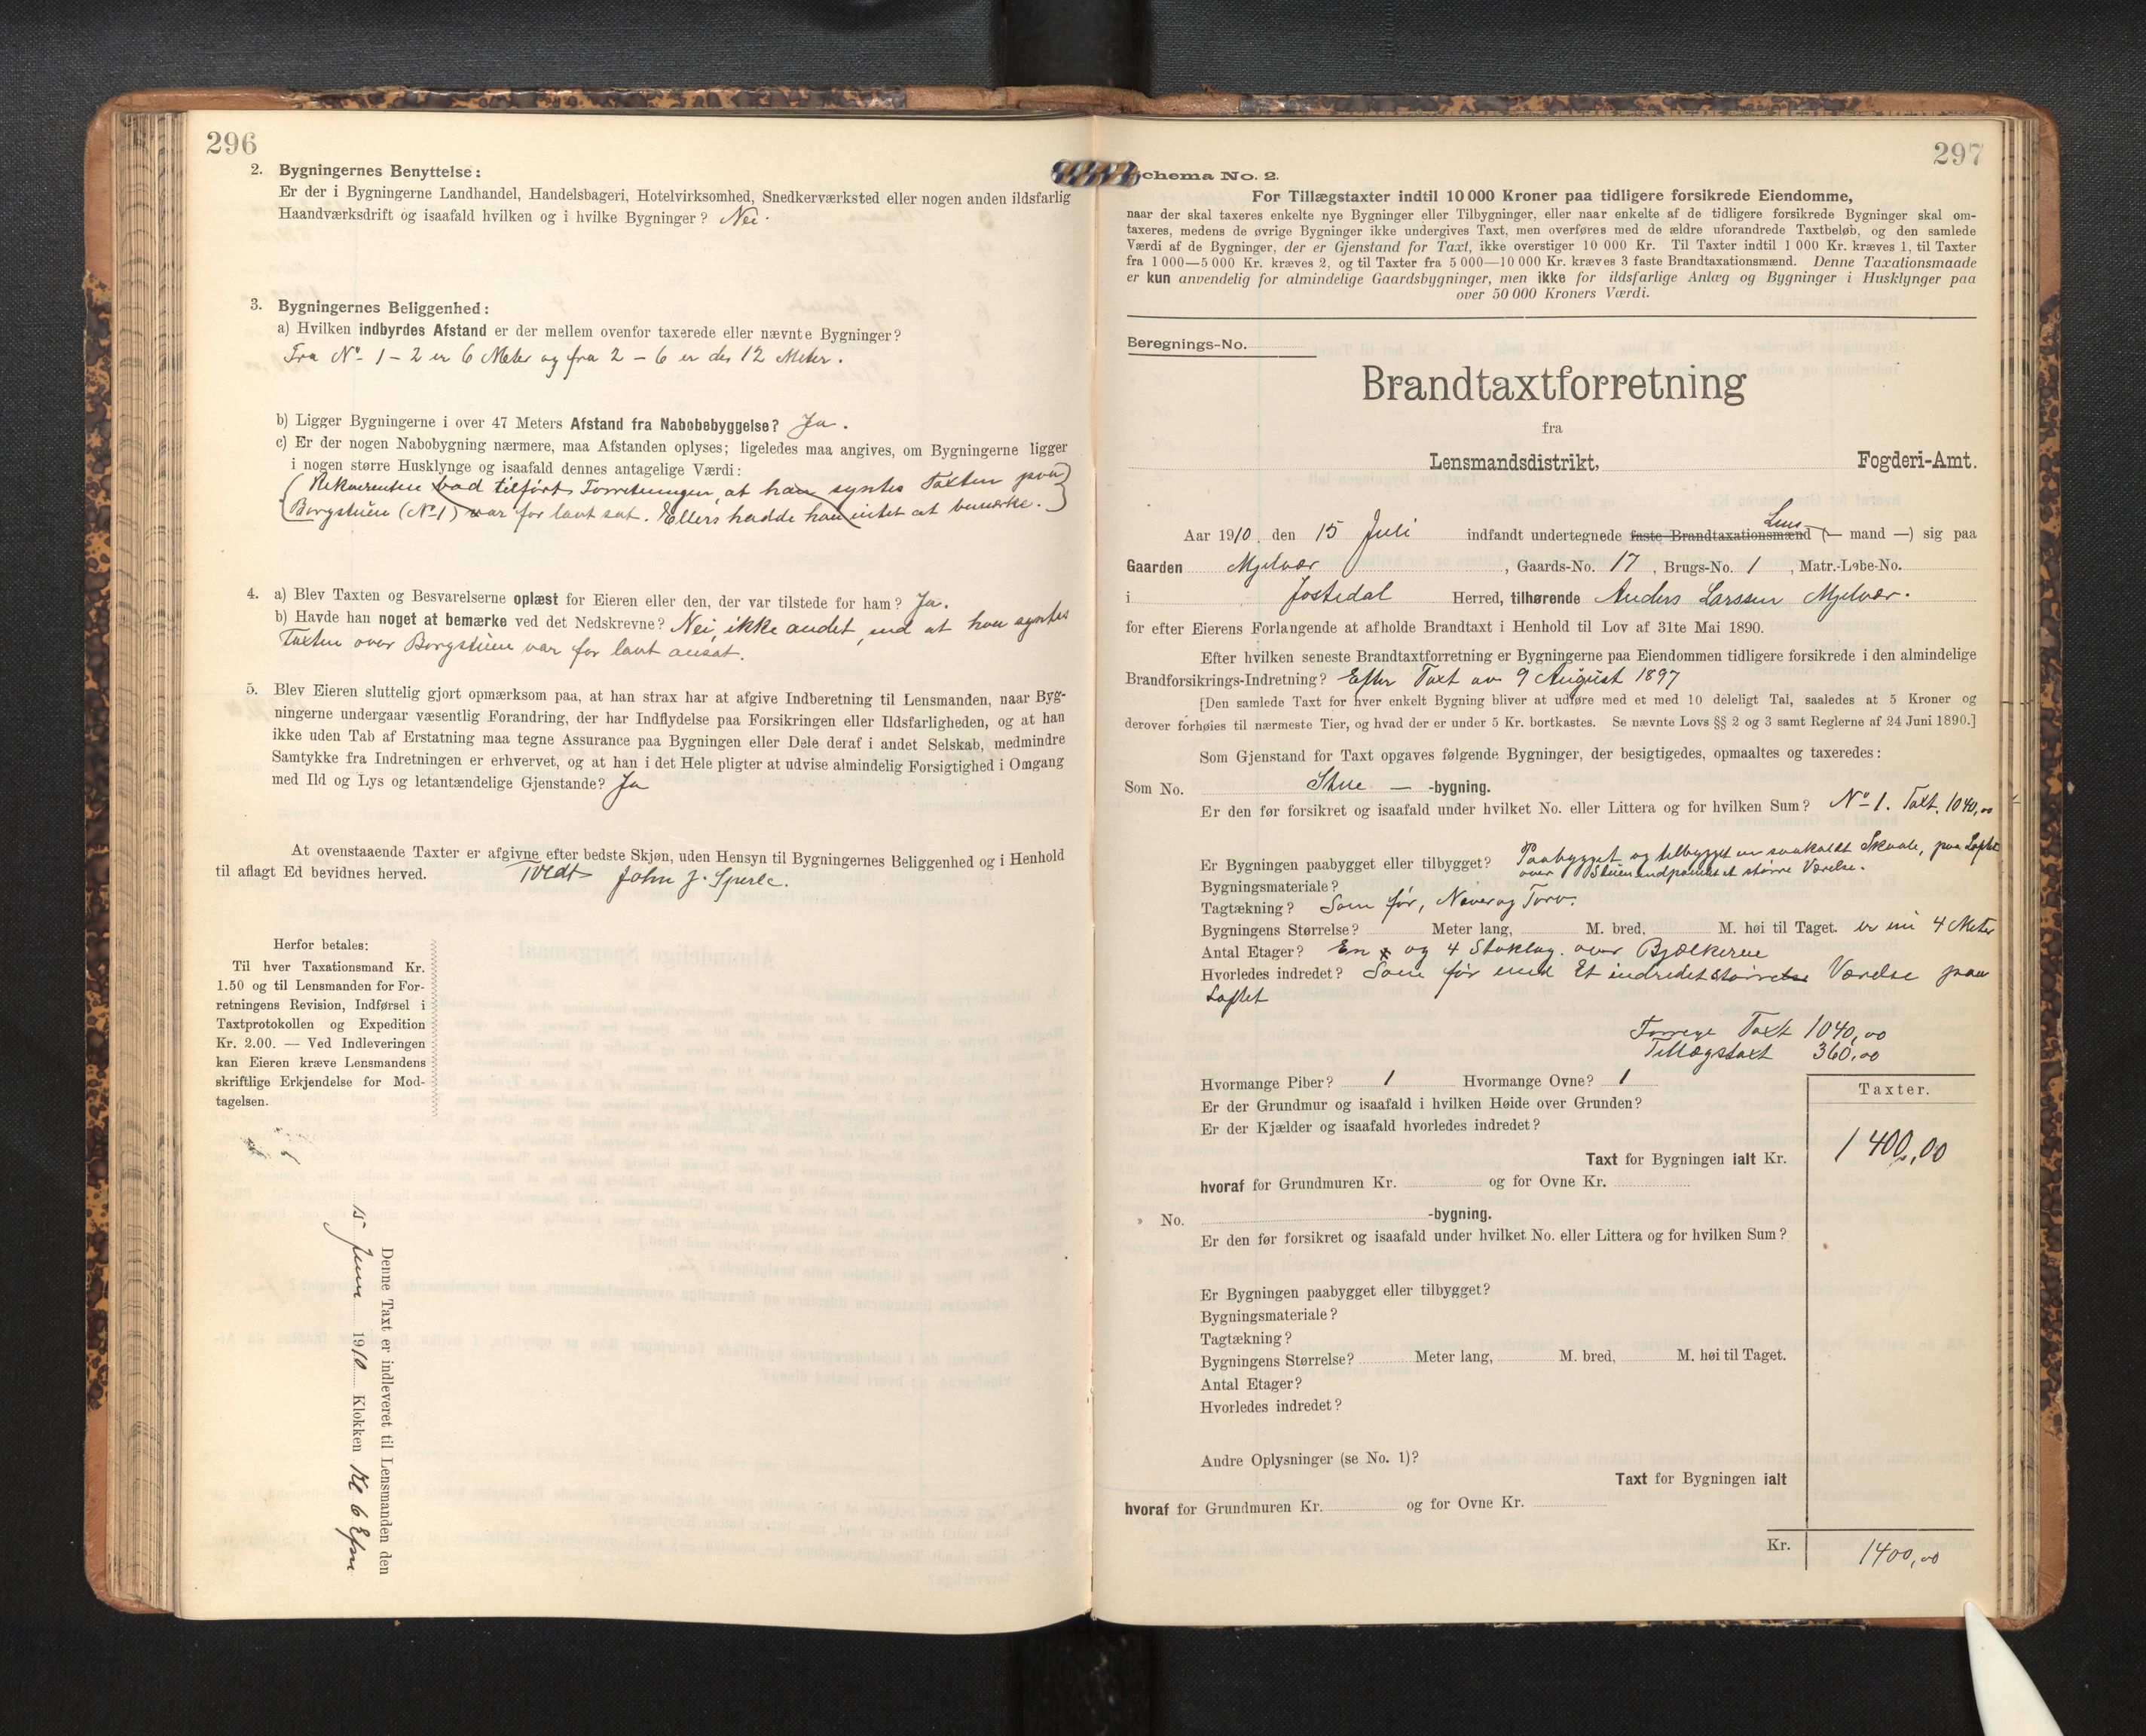 296
2. Bygningernes Benyttelse:
Er der i Bygningerne Landhandel, Handelsbageri, Hotelvirksomhed, Snedkerværksted eller nogen anden ildsfarlig
Haandværksdrift og isaafald hvilken og i hvilke Bygninger? Nei.
3. Bygningernes Beliggenhed:
a) Hvilken indbyrdes Afstand er der mellem ovenfor taxerede eller nævnte Bygninger?
Fra No 1 – 2 er 6 Meter og fra 2 – 6 er der 12 Meter.
b) Ligger Bygningerne i over 47 Meters Afstand fra Nabobebyggelse? Ja.
c) Er der nogen Nabobygning nærmere, maa Afstanden oplyses; ligeledes maa angives, om Bygningerne ligger
i nogen større Husklynge og isaafald dennes antagelige Værdi:
(Rekvirenten bad tilført Forretningen, at han syntes Taxten paa
Borgstuen (No 1) var for lavt sat. Ellers hadde han intet at bemærke.)
4. a) Blev Taxten og Besvarelserne oplæst for Eieren eller den, der var tilstede for ham? Ja.
b) Havde han noget at bemærke ved det Nedskrevne? Nei, ikke andet, end at han syntes
Taxten over Borgstuen var for lavt ansat.
5. Blev Eieren sluttelig gjort opmærksom paa, at han strax har at afgive Indberetning til Lensmanden, naar Byg-
ningerne undergaar væsentlig Forandring, der har Indflydelse paa Forsikringen eller Ildsfarligheden, og at han
ikke uden Tab af Erstatning maa tegne Assurance paa Bygningen eller Dele deraf i andet Selskab, medmindre
Samtykke fra Indretningen er erhvervet, og at han i det Hele pligter at udvise almindelig Forsigtighed i Omgang
med Ild og Lys og letantændelige Gjenstande? Ja
At ovenstaaende Taxter er afgivne efter bedste Skjøn, uden Hensyn til Bygningernes Beliggenhed og i Henhold
til aflagt Ed bevidnes herved. John J. Sperle.
Herfor betales:
Til hver Taxationsmand Kr.
1.50 og til Lensmanden for For-
retningens Revision, Indførsel i
Taxtprotokollen og Expedition
Kr. 2.00. — Ved Indleveringen
kan Eieren kræve Lensmandens
skriftlige Erkjendelse for Mod-
tagelsen.
Denne Taxt er indleveret til Lensmanden den
15 Juni 1910 Klokken Kl 6 Efm
297
Schema No. 2.
For Tillægstaxter indtil 10 000 Kroner paa tidligere forsikrede Eiendomme,
naar der skal taxeres enkelte nye Bygninger eller Tilbygninger, eller naar enkelte af de tidligere forsikrede Bygninger skal om-
taxeres, medens de øvrige Bygninger ikke undergives Taxt, men overføres med de ældre uforandrede Taxtbeløb, og den samlede
Værdi af de Bygninger, der er Gjenstand for Taxt, ikke overstiger 10 000 Kr. Til Taxter indtil 1 000 Kr. kræves 1, til Taxter
fra 1 000—5 000 Kr. kræves 2, og til Taxter fra 5 000—10 000 Kr. kræves 3 faste Brandtaxationsmænd. Denne Taxationsmaade
er kun anvendelig for almindelige Gaardsbygninger, men ikke for ildsfarlige Anlæg og Bygninger i Husklynger paa
over 50 000 Kroners Værdi.
Beregnings-No.
Brandtaxtforretning
fra
Lensmandsdistrikt, Fogderi-Amt.
Aar 1910 den 15 Juli indfandt undertegnede faste Brandtaxationsmænd Lens (— mand —) sig paa
Gaarden Mjelvær, Gaards-No. 17, Brugs-No. 1, Matr.-Løbe-No.
i Jostedal Herred, tilhørende Anders Larssen Mjelvær.
for efter Eierens Forlangende at afholde Brandtaxt i Henhold til Lov af 31te Mai 1890.
Efter hvilken seneste Brandtaxtforretning er Bygningerne paa Eiendommen tidligere forsikrede i den almindelige
Brandforsikrings-Indretning? Efter Taxt av 9 August 1897
[Den samlede Taxt for hver enkelt Bygning bliver at udføre med et med 10 deleligt Tal, saaledes at 5 Kroner og
derover forhøies til nærmeste Tier, og hvad der er under 5 Kr. bortkastes. Se nævnte Lovs §§ 2 og 3 samt Reglerne af 24 Juni 1890.]
Som Gjenstand for Taxt opgaves følgende Bygninger, der besigtigedes, opmaaltes og taxeredes:
Som No. Stue — -bygning.
Er den før forsikret og isaafald under hvilket No. eller Littera og for hvilken Sum? No 1. Taxt. 1040,00
Er Bygningen paabygget eller tilbygget? Paabygget og tilbygget en saakaldt Skvale, paa Loftet
over Stuen indpanelet et større Værelse.
Bygningsmateriale?
Tagtækning? Som før, Never og Torv.
Bygningens Størrelse? Meter lang, M. bred, M. høi til Taget. er nu 4 Meter
Antal Etager? En og 4 Stoklag. over Bjælkerne
Hvorledes indredet? Som før med Et indredet større Værelse paa
Loftet
Forrige Taxt 1040,00
Tillægstaxt 360,00
Hvormange Piber? 1 Hvormange Ovne? 1
Taxter.
Er der Grundmur og isaafald i hvilken Høide over Grunden?
Er der Kjælder og isaafald hvorledes indredet?
Taxt for Bygningen ialt Kr. 1400,00
hvoraf for Grundmuren Kr. og for Ovne Kr.
» No. -bygning.
Er den før forsikret og isaafald under hvilket No. eller Littera og for hvilken Sum?
Er Bygningen paabygget eller tilbygget?
Bygningsmateriale?
Tagtækning?
Bygningens Størrelse? Meter lang, M. bred, M. høi til Taget.
Antal Etager?
Hvorledes indredet?
Andre Oplysninger (se No. 1)?
Taxt for Bygningen ialt
hvoraf for Grundmuren Kr. og for Ovne Kr.
Kr. 1400,00